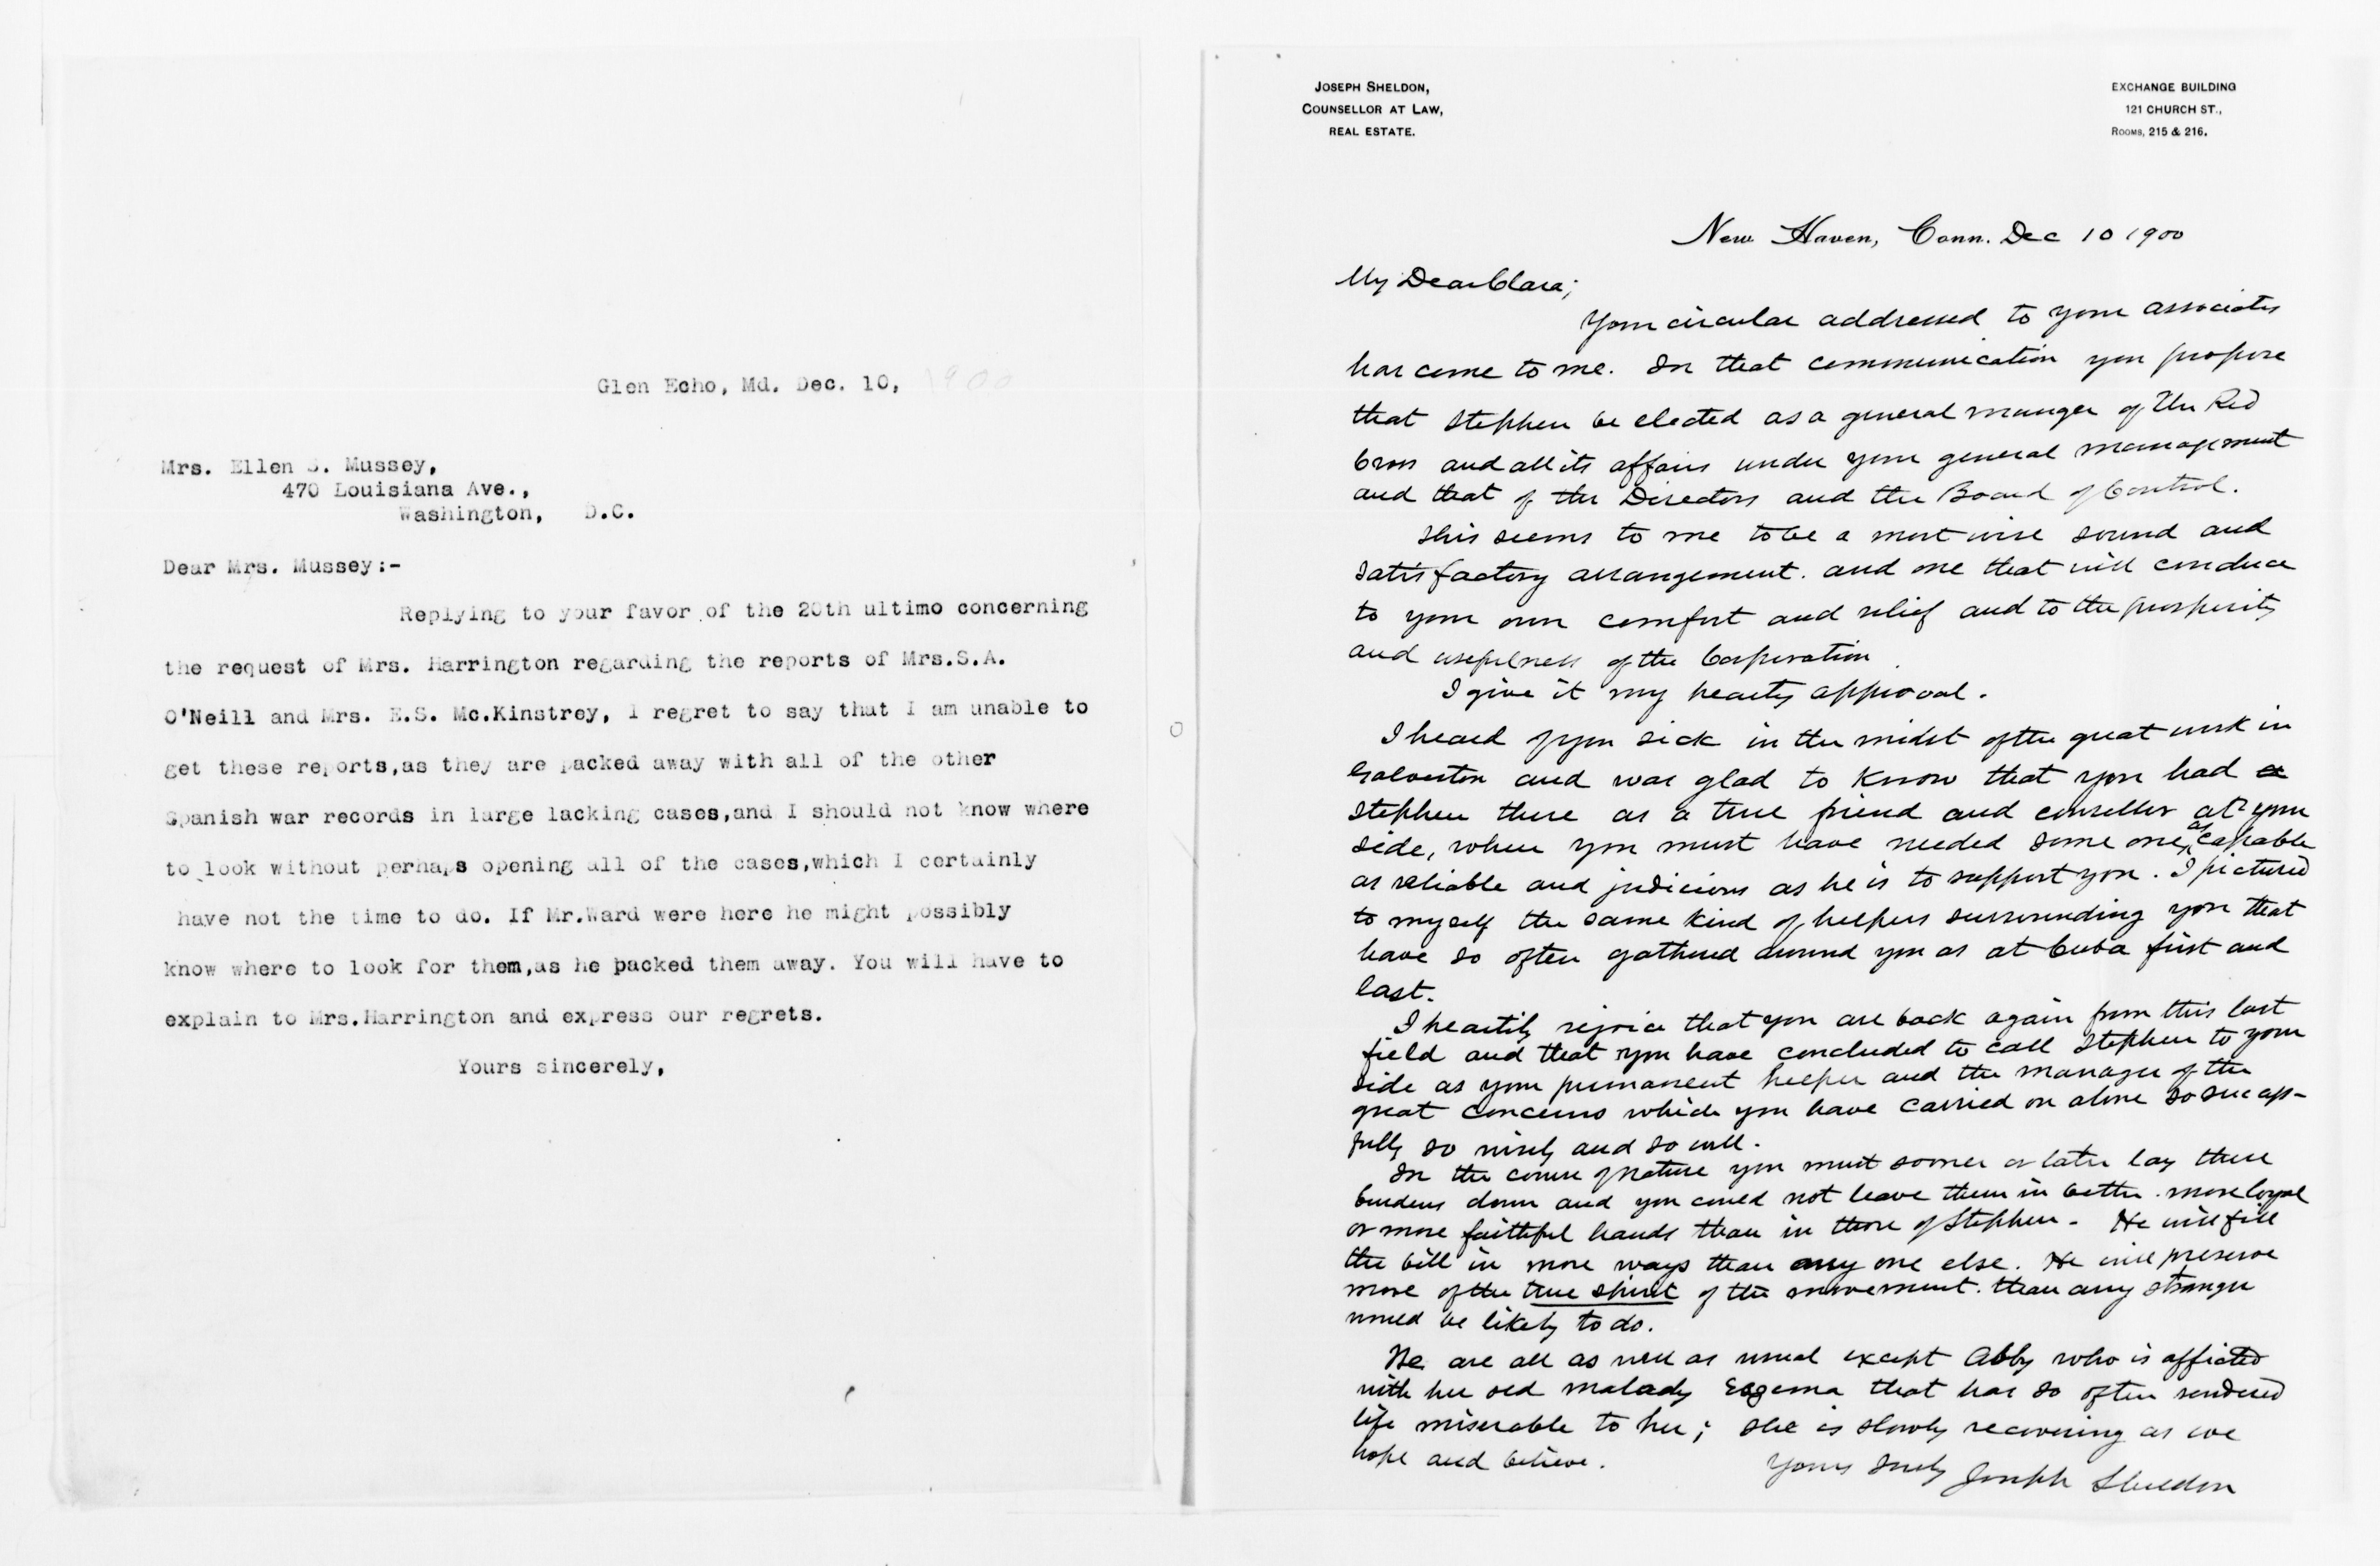 Glen Echo, Md. Dec. 10, 1900
Mrs. Ellen S. Mussey,
470 Louisiana Ave.,
Washington, D.C.
Dear Mrs. Mussey:-
Replying to your favor of the 20th ultimo concerning
the request of Mrs. Harrington regarding the reports of Mrs.S.A.
O'Neill and Mrs. E.S. Mc.Kinstrey, I regret to say that I am unable to
get these reports,as they are packed away with all of the other
Spanish war records in large lacking cases,and I should not know where
to look without perhaps opening all of the cases,which I certainly
have not the time to do. If Mr.Ward were here he might possibly
know where to look for them,as he packed them away. You will have to
explain to Mrs.Harrington and express our regrets.
Yours sincerely,
JOSEPH SHELDON,
COUNSELLOR AT LAW,
REAL ESTATE.
EXCHANGE BUILDING
121 CHURCH ST.,
ROOMS, 215 & 216.
New Haven, Conn. Dec 10 1900
My Dear Clara;
Your circular addressed to your associates
has come to me. In that communication you propose
that Stephen be elected as a general manger of the Red
Cross and all its affairs under your general management
and that of the Directors and the Board of Control.
This seems to me to be a most wise sound and
satisfactory arrangement. and one that will conduce
to your own comfort and relief and to the prosperity
and usefulness of the Corporation.
I give it my hearty approval.
I heard of you sick in the midst of the great work in
Galveston and was glad to know that you had a
Stephen there as a true friend and conseller at your
side, when you must have needed some one, as capable
as reliable and judicious as he is to support you. I pictured
to myself the same kind of helpers surrounding you that
have so often gathered around you as at Cuba first and
last.
I heartily rejoice that you are back again from this last
field and that you have concluded to call Stephen to your
side as your permanent helper and the manager of the
great concerns which you have carried on alone so success-
fully so wisely and so well.
In the course of nature you must sooner or later lay these
burdens down and you could not leave them in better. more loyal
or more faithful hands than in those of Stephen- He will fill
the bill in more ways than any one else. He will preserve
more of the true spirit of the movement. than any stranger
would be likely to do.
We are all as well as usual except Abby who is afficted
with her old malady Exgema that has so often rendered
life miserable to her; she is slowly recovering as we
hope and believe.
Yours Truly Joseph Sheldon